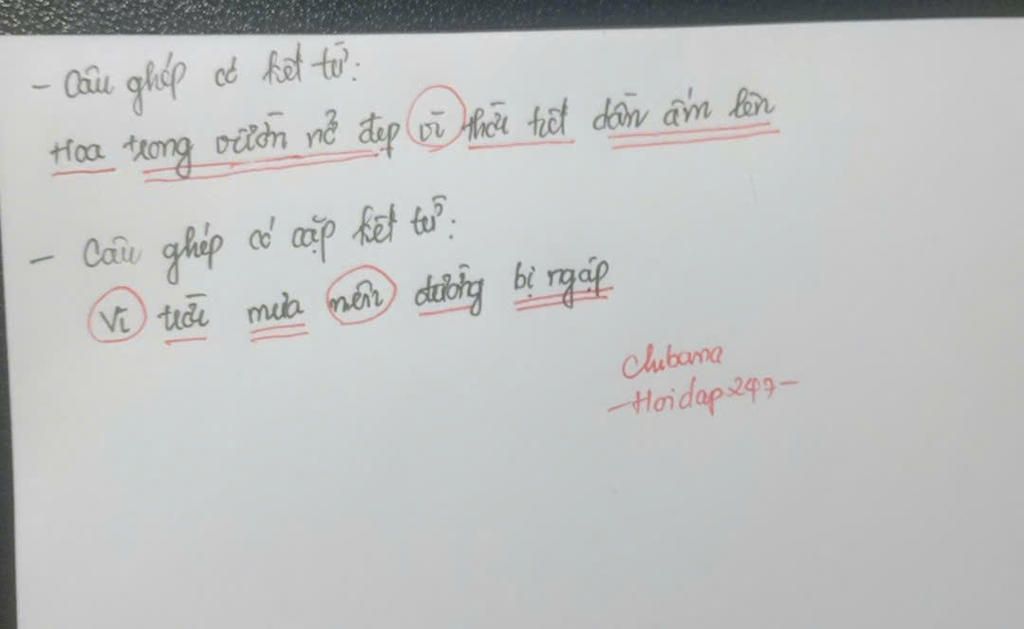 - Câu ghép có kết từ:
Hoa trong vườn nở đẹp vì thời tiết dần ấm lên
- Câu ghép có cặp kết từ:
Vì trời mưa nên đường bị ngập
Chubana
-Hoidap247-